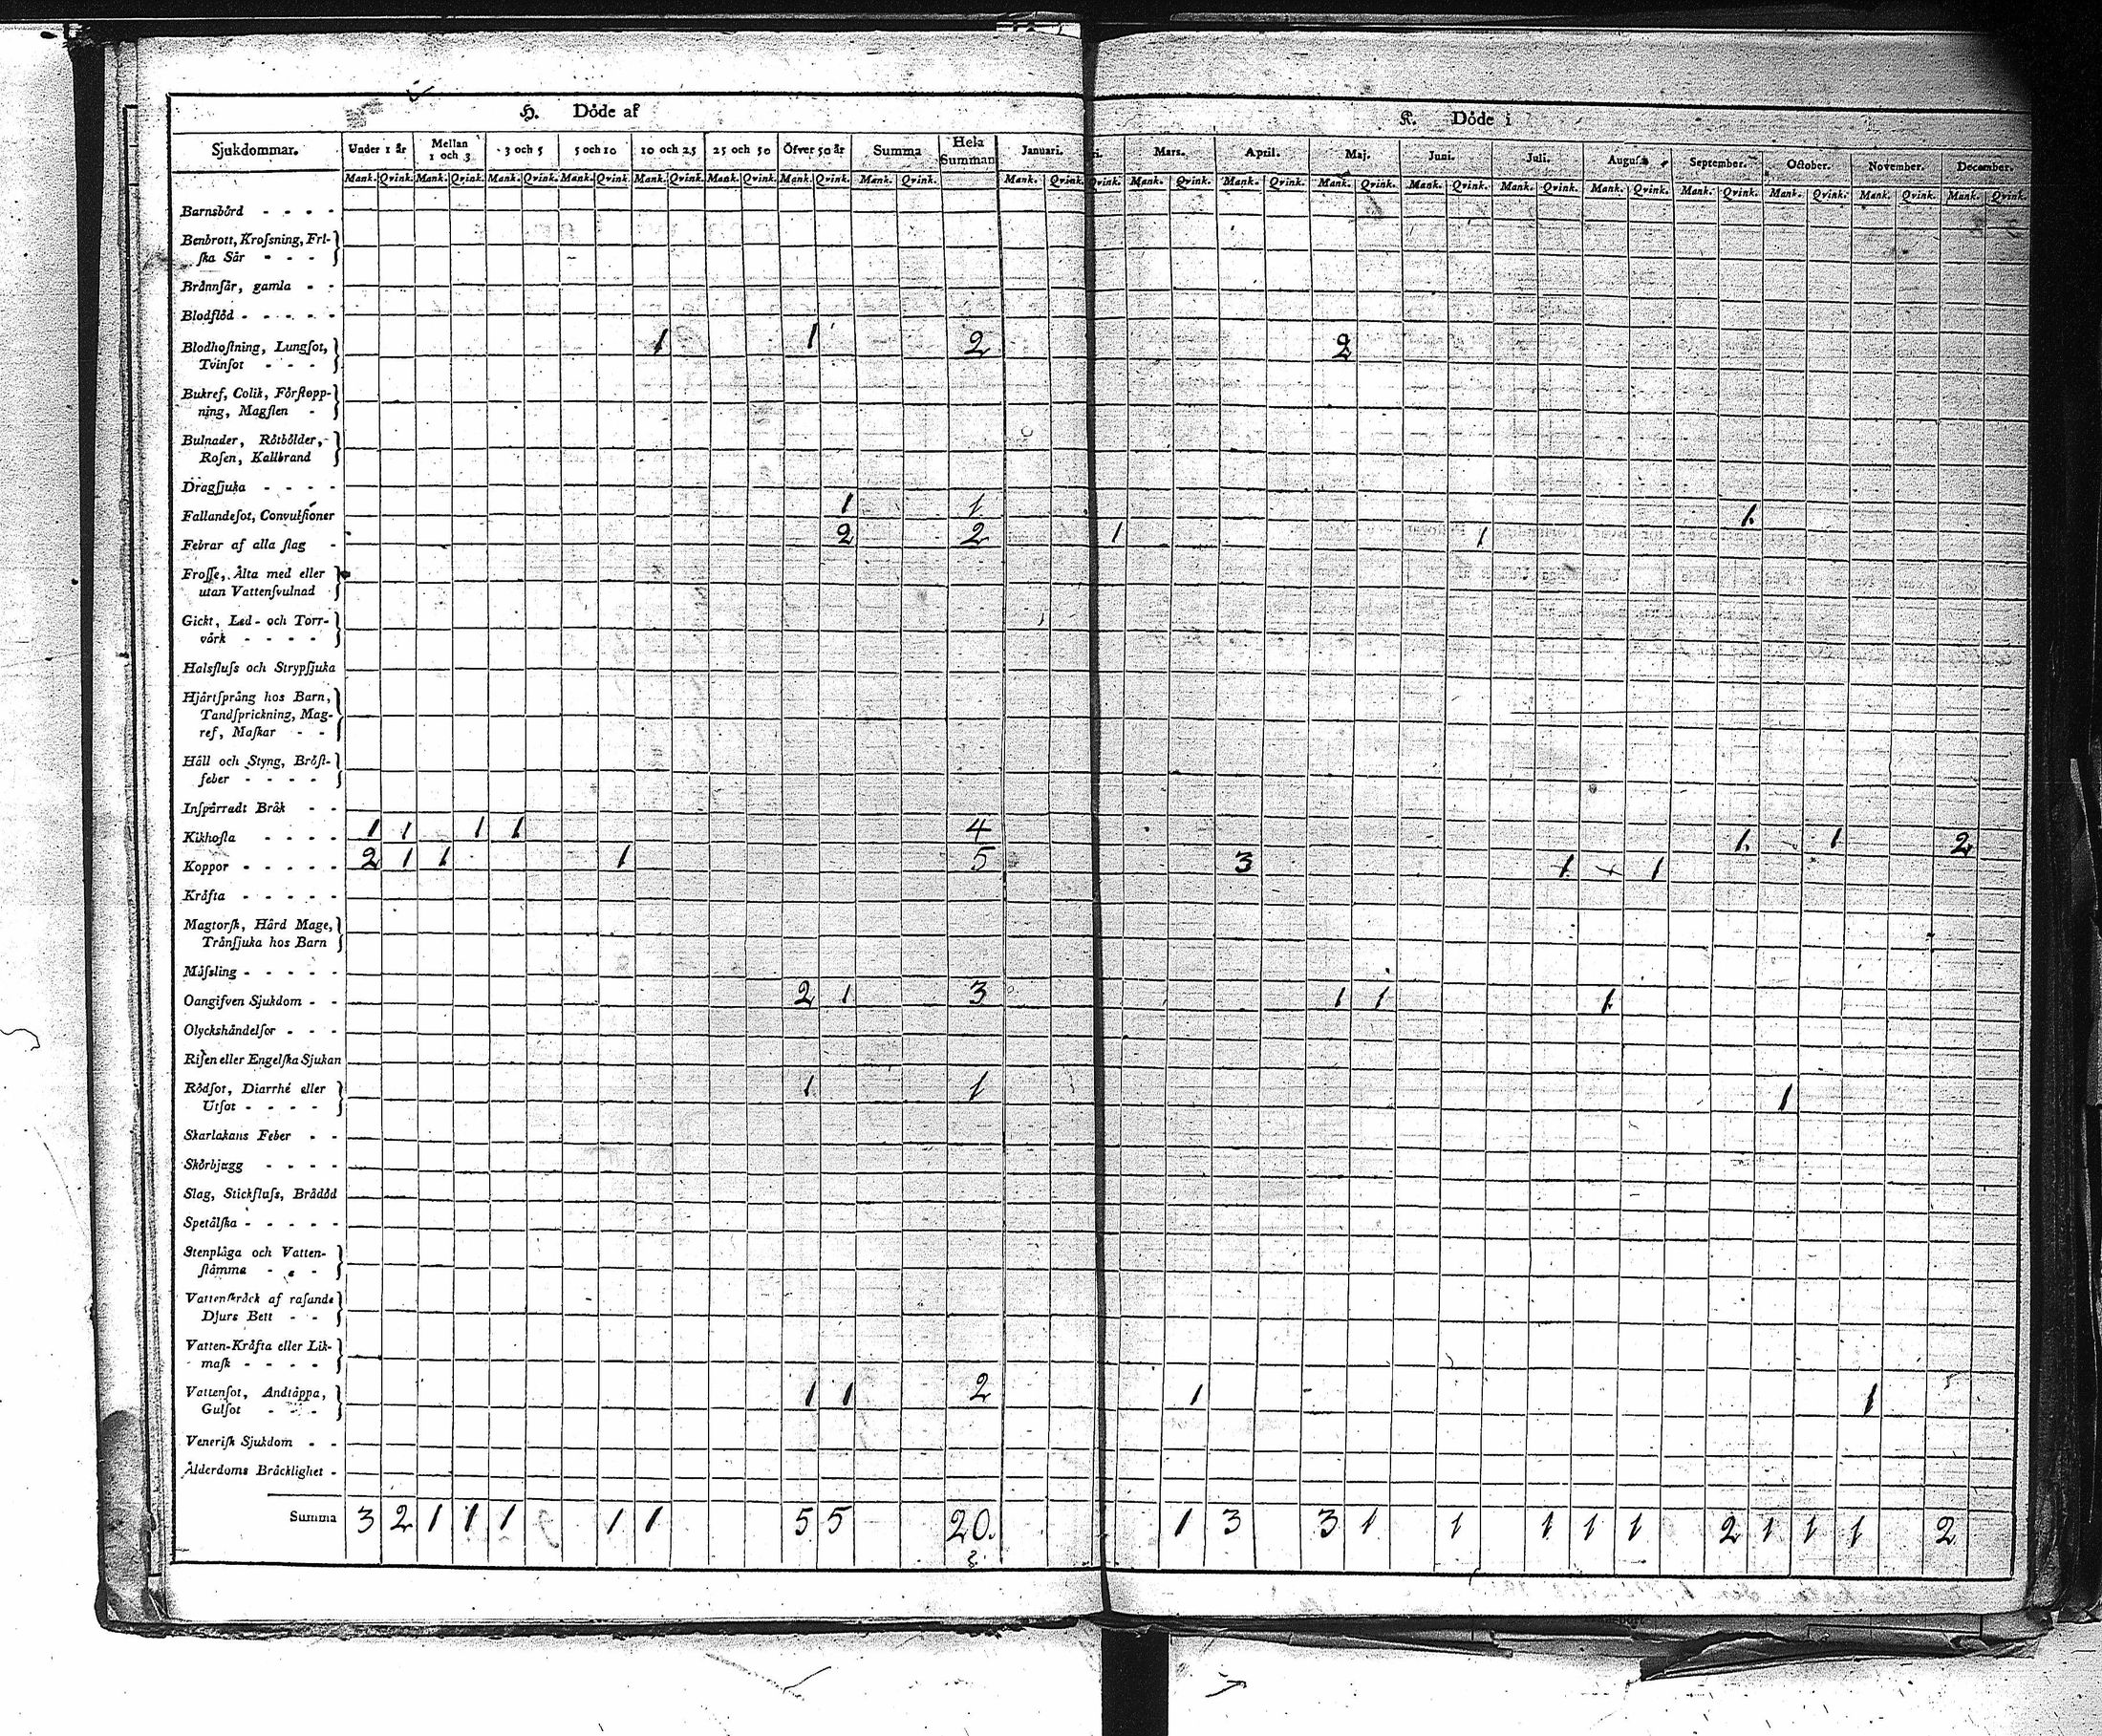 H. Döde af
K. Döde i
Sjukdommar. Under 1 år Mellan 1 och 3 3 och 5 5 och 10 10 och 25 25 och 50 Öfver 50 år Summa Hela Summan Januari. ri. Mars. April. Maj. Juni. Juli. Augusti. September. October. November. December.
Mank. Qvink. Mank. Qvink. Mank. Qvink. Mank. Qvink. Mank. Qvink. Mank. Qvink. Mank. Qvink. Mank. Qvink. Mank. Qvink. Qvink. Mank. Qvink. Mank. Qvink. Mank. Qvink. Mank. Qvink. Mank. Qvink. Mank. Qvink. Mank. Qvink. Mank. Qvink. Mank. Qvink. Mank. Qvink.
Barnsbörd - - - -
Benbrott, Krossning, Fri-
ska Sår - - -
Brånnsår, gamla - -
Blodflöd - - - - -
Blodhostning, Lungsot, 1 1 2 2
Tvinsot - - -
Bukref, Colik, Förstopp-
ning, Magsten -
Bulnader, Rötbölder,
Rosen, Kallbrand
Dragsjuka - - - -
Fallandesot, Convulsioner 1 1 1.
Febrar af alla slag - 2 2 1 1
Frosse, Ålta med eller
utan Vattensvulnad
Gickt, Led- och Torr-
vårk - - - -
Halsfluss och Strypsjuka
Hjårtsprång hos Barn,
Tandsprickning, Mag-
ref, Maskar - -
Håll och Styng, Bröst-
feber - - - -
Inspårradt Bråk - -
Kikhosta - - - - 1 1 1 1 4 1. 1 2
Koppor - - - - - 2 1 1 1 5 3 1 1
Kråfta - - - - -
Magtorsk, Hård Mage,
Trånsjuka hos Barn
Måssling - - - - -
Oangifven Sjukdom - - 2 1 3 1 1 1
Olyckshåndelsor - - -
Risen eller Engelska Sjukan
Rödsot, Diarrhé eller 1 1 1
Utsot - - - -
Skarlakans Feber - -
Skörbjugg - - - -
Slag, Stickfluss, Brådöd
Spetålska - - - - -
Stenplåga och Vatten-
ståmma - - -
Vattenskråck af rasande
Djurs Bett - -
Vatten-Kråfta eller Lik-
mask - - - -
Vattensot, Andtåppa, 1 1 2 1 1
Gulsot - - -
Venerisk Sjukdom - -
Ålderdoms Bråcklighet -
Summa 3 2 1 1 1 1 1 5 5 20. 1 1 3 3 1 1 1 1 1 2 1 1 1 2